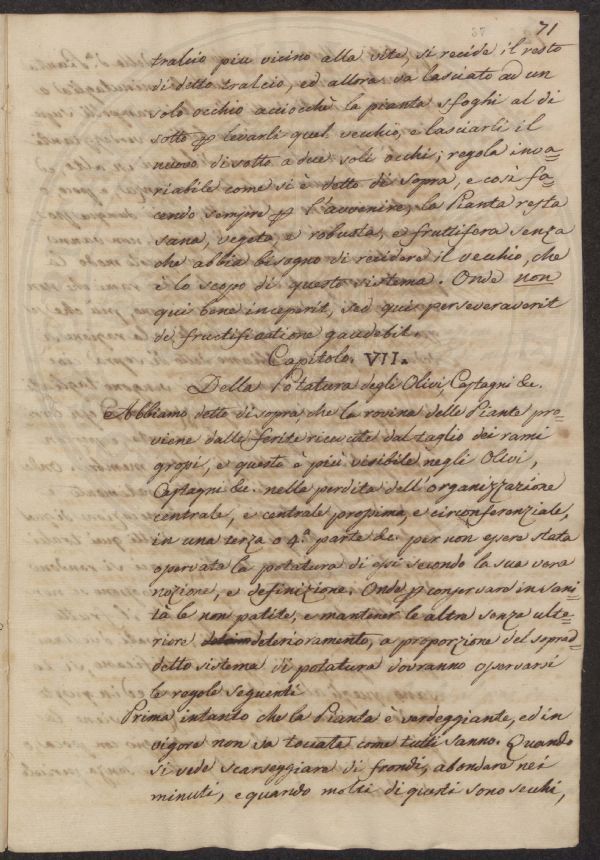 37 71
tralcio piu vicino alla vite, si recide il resto
di detto tralcio, ed allora va lasciato ad un
solo occhio acciocchè la pianta sfoghi al di
sotto ꝑ levarli quel vecchio, e lasciarli il
nuovo di sotto a due soli occhi; regola inva=
riabile come si è detto di sopra, e così fa=
cendo sempre ꝑ l'avvenire, la Pianta resta
sana, vegeta, e robusta, e fruttifera senza
che abbia bisogno di recidere il vecchio, che
è lo scopo di questo sistema. Onde non
qui bene inceperit, sed qui perseveraverit
de fructificatione gaudebit.
Capitolo. VII.
Della Potatura degli Olivi, Castagni &c.
Abbiamo detto di sopra, che la rovina delle Piante pro=
viene dalle ferite ricevute dal taglio dei rami
grossi, e questo è più visibile negli Olivi,
Castagni &c. nella perdita dell'organizzazione
centrale, e centrale prossima, e circonferenziale,
in una terza o 4.ª parte &c. per non essere stata
osservata la potatura di essi secondo la sua vera
nozione, e definizione. Onde ꝑ conservare in sani=
tà le non patite, e mantener le altre senza ulte=
riore deterioramento, a proporzione del soprad=
detto sistema di potatura dovranno osservarsi
le regole seguenti
Prima intanto che la Pianta è verdeggiante, ed in
vigore non va toccata come tutti sanno. Quando
si vede scarseggiare di frondi, abondare nei
minuti, e quando molti di questi sono secchi,